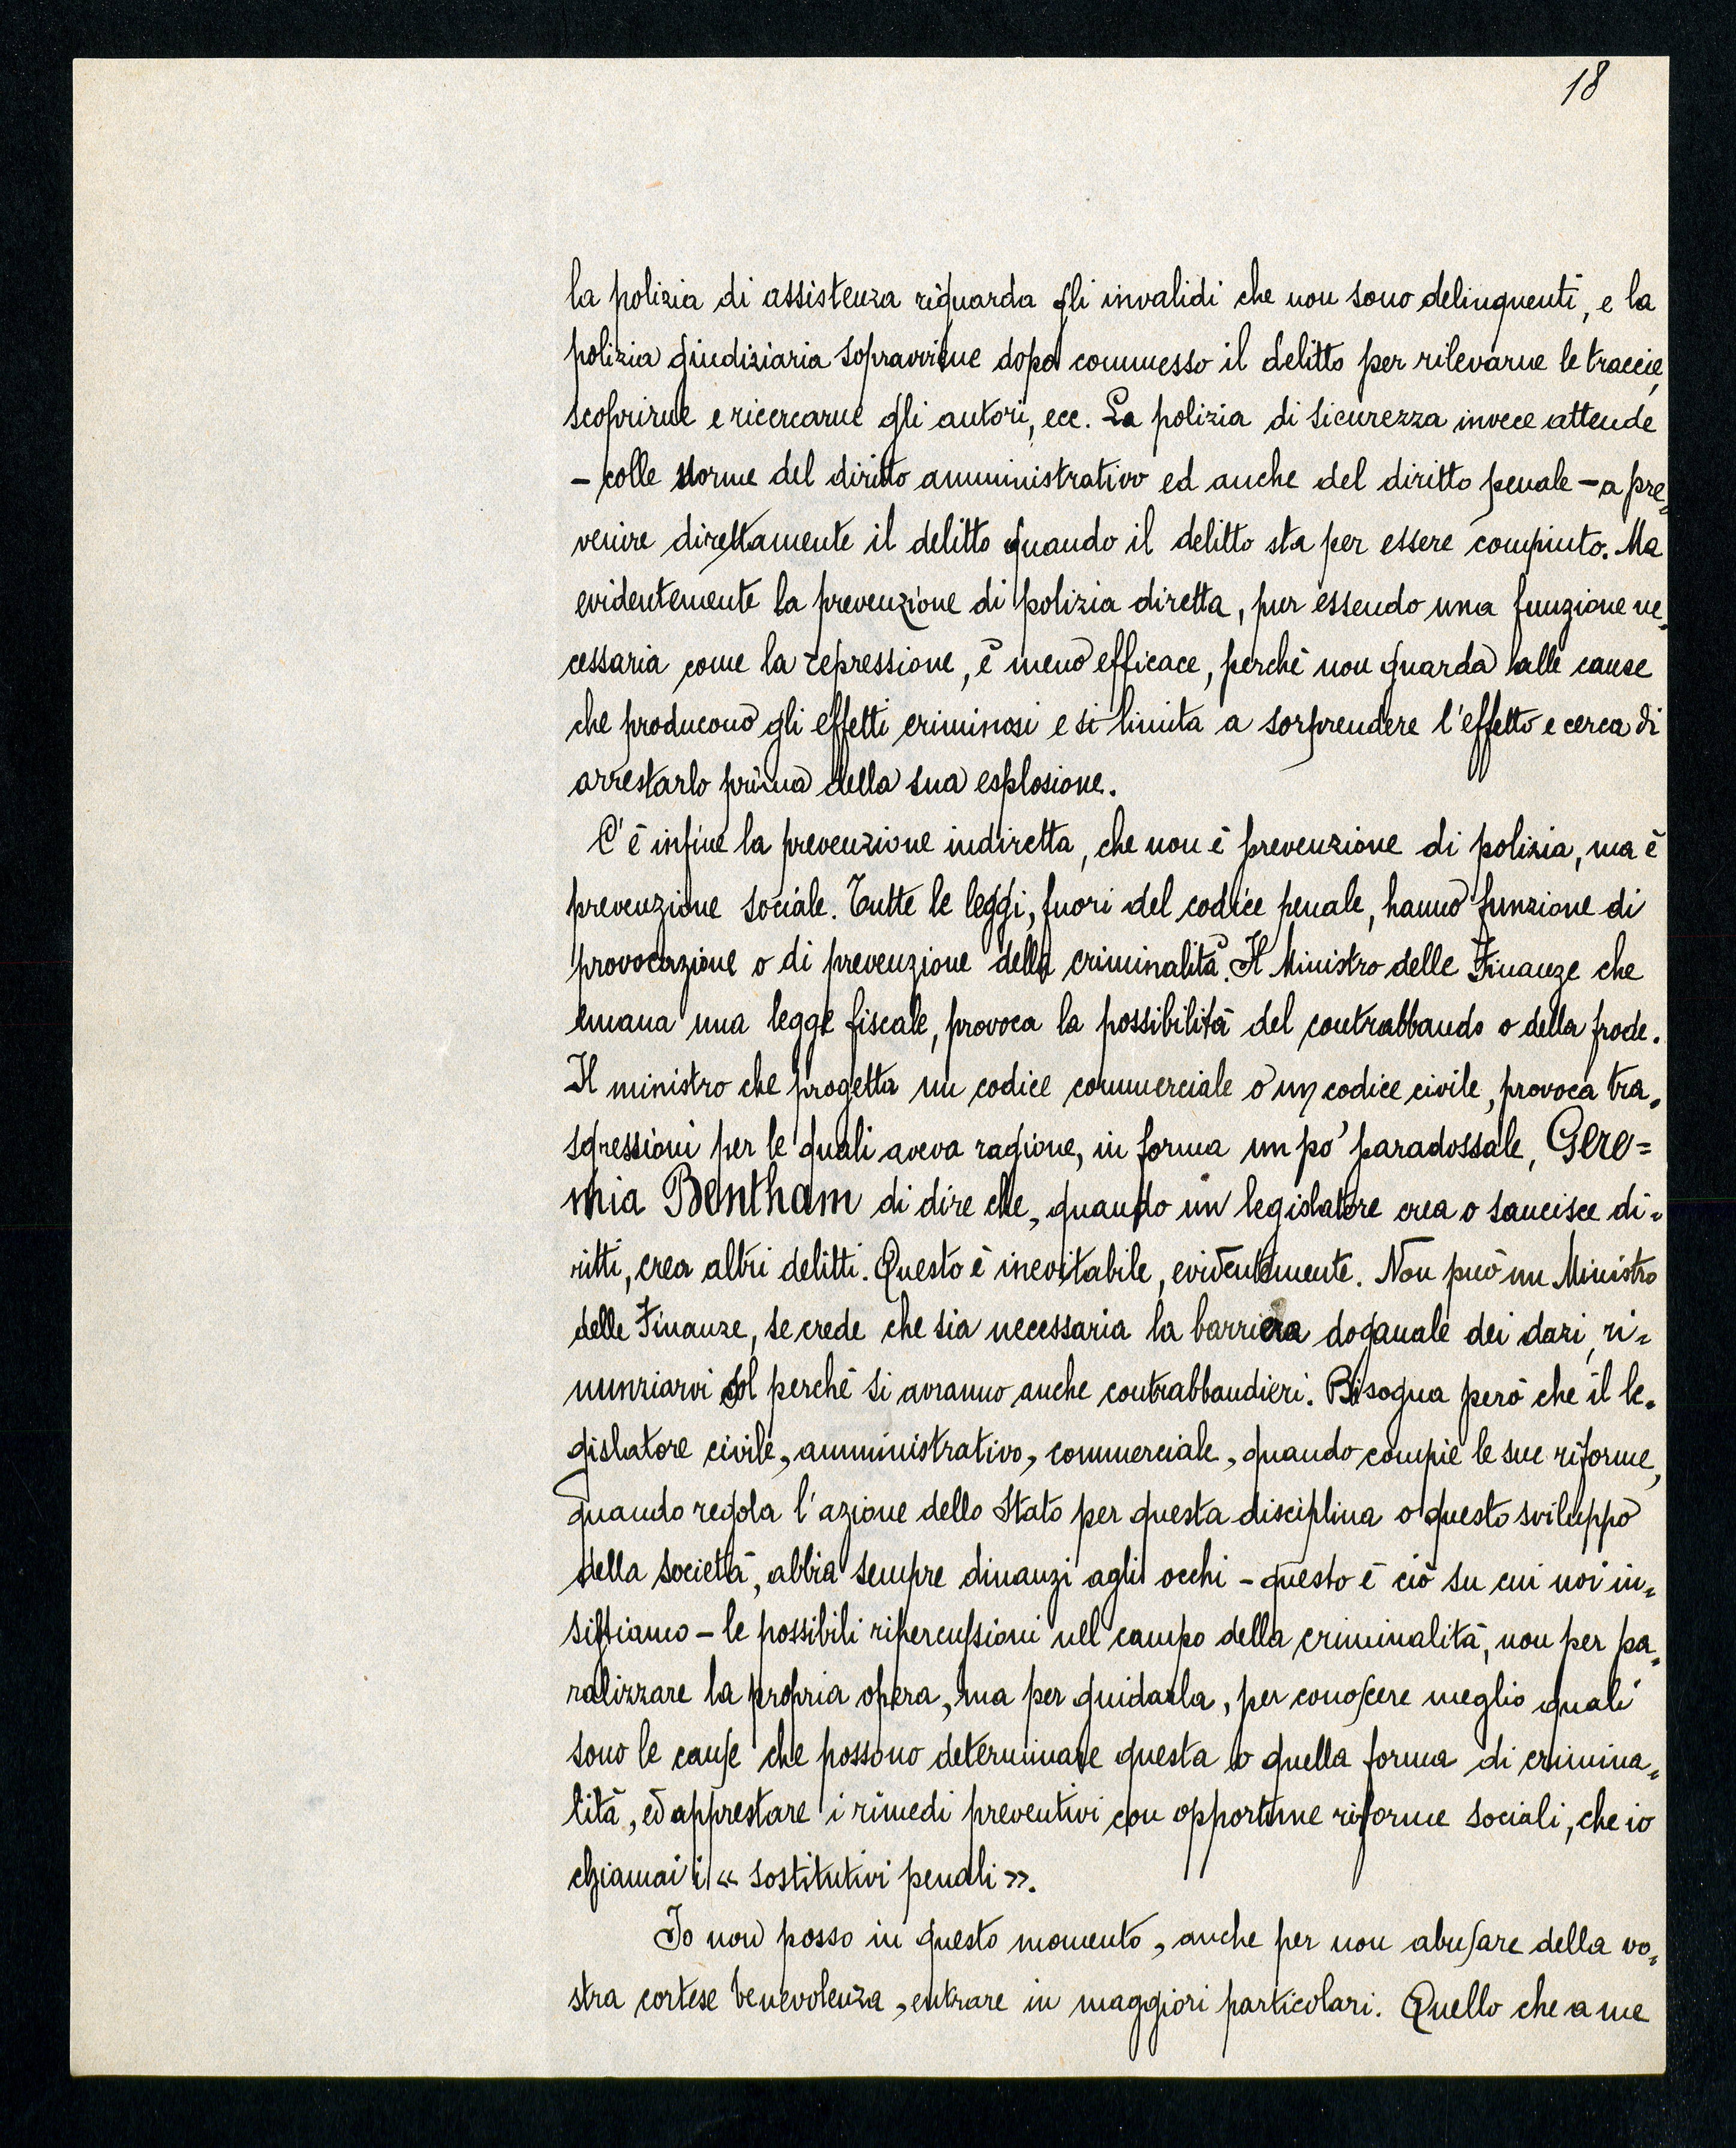 18
la polizia di assistenza riguarda gli invalidi che non sono delinquenti, e la
polizia giudiziaria sopravviene dopo commesso il delitto per rilevarne le traccie,
scoprirne e ricercarne gli autori, ecc. La polizia di sicurezza invece attende
– colle norme del diritto amministrativo ed anche del diritto penale – a pre„
venire direttamente il delitto quando il delitto sta per essere compiuto. Ma
evidentemente la prevenzione di polizia diretta, pur essendo una funzione ne„
cessaria come la repressione, è meno efficace, perchè non guarda alle cause
che producono gli effetti criminosi e si limita a sorprendere l'effetto e cerca di
arrestarlo prima della sua esplosione.
C'è infine la prevenzione indiretta, che non è prevenzione di polizia, ma è
prevenzione sociale. Tutte le leggi, fuori del codice penale, hanno funzione di
provocazione o di prevenzione della criminalità. Il Ministro delle Finanze che
emana una legge fiscale, provoca la possibilità del contrabbando o della frode.
Il ministro che progetta un codice commerciale o un codice civile, provoca tra„
sgressioni per le quali aveva ragione, in forma un po' paradossale, Gere=
mia Bentham di dire che, quando un legislatore crea o sancisce di„
ritti, crea altri delitti. Questo è inevitabile, evidentemente. Non può un Ministro
delle Finanze, se crede che sia necessaria la barriera doganale dei dazi, ri„
nunziarvi sol perchè si avranno anche contrabbandieri. Bisogna però che il le„
gislatore civile, amministrativo, commerciale, quando compie le sue riforme,
quando regola l'azione dello Stato per questa disciplina o questo sviluppo
della società, abbia sempre dinanzi agli occhi – questo è ciò su cui noi in„
sistiamo – le possibili ripercussioni nel campo della criminalità, non per pa„
ralizzare la propria opera, ma per guidarla, per conoscere meglio quali
sono le cause che possono determinare questa o quella forma di crimina„
lità, ed apprestare i rimedi preventivi con opportune riforme sociali, che io
chiamai i « sostitutivi penali ».
Io non posso in questo momento, anche per non abusare della vo„
stra cortese benevolenza, entrare in maggiori particolari. Quello che a me